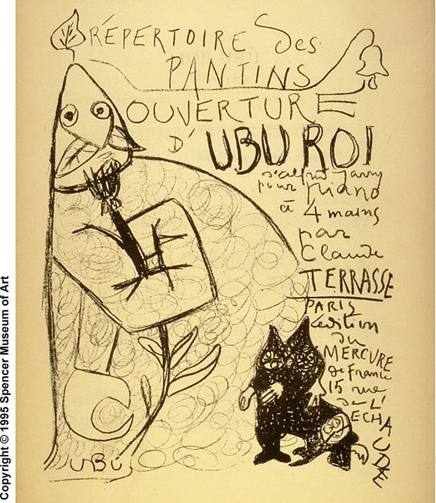 RÉPERTOIRE des
PANTINS
OUVERTURE
D'UBU ROI
d'Alfred Jarry
pour piano
à 4 mains
par
Claude
TERRASSE
PARIS
édition
du
MERCURE
de France
15 rue
de L'
ECHAUDE
UBU
Copyright © 1995 Spencer Museum of Art